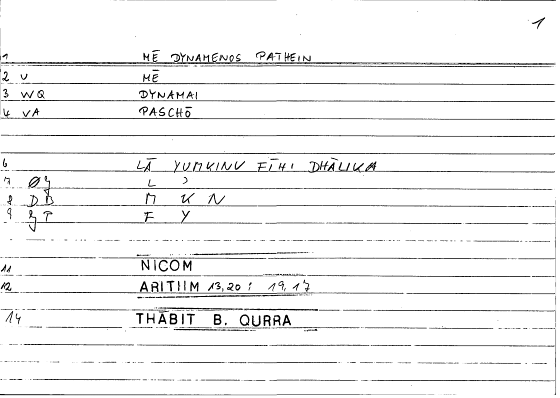 1
1 MĒ DYNAMENOS PATHEIN
2 V MĒ
3 WQ DYNAMAI
4 VA PASCHŌ
6 LĀ YUMKINU FĪHI DHĀLIKA
7 L ʾ
8 DB M K N
9 F Y
11 NICOM
12 ARITIIM 13,20 : 19,17
14 THĀBIT B. QURRA